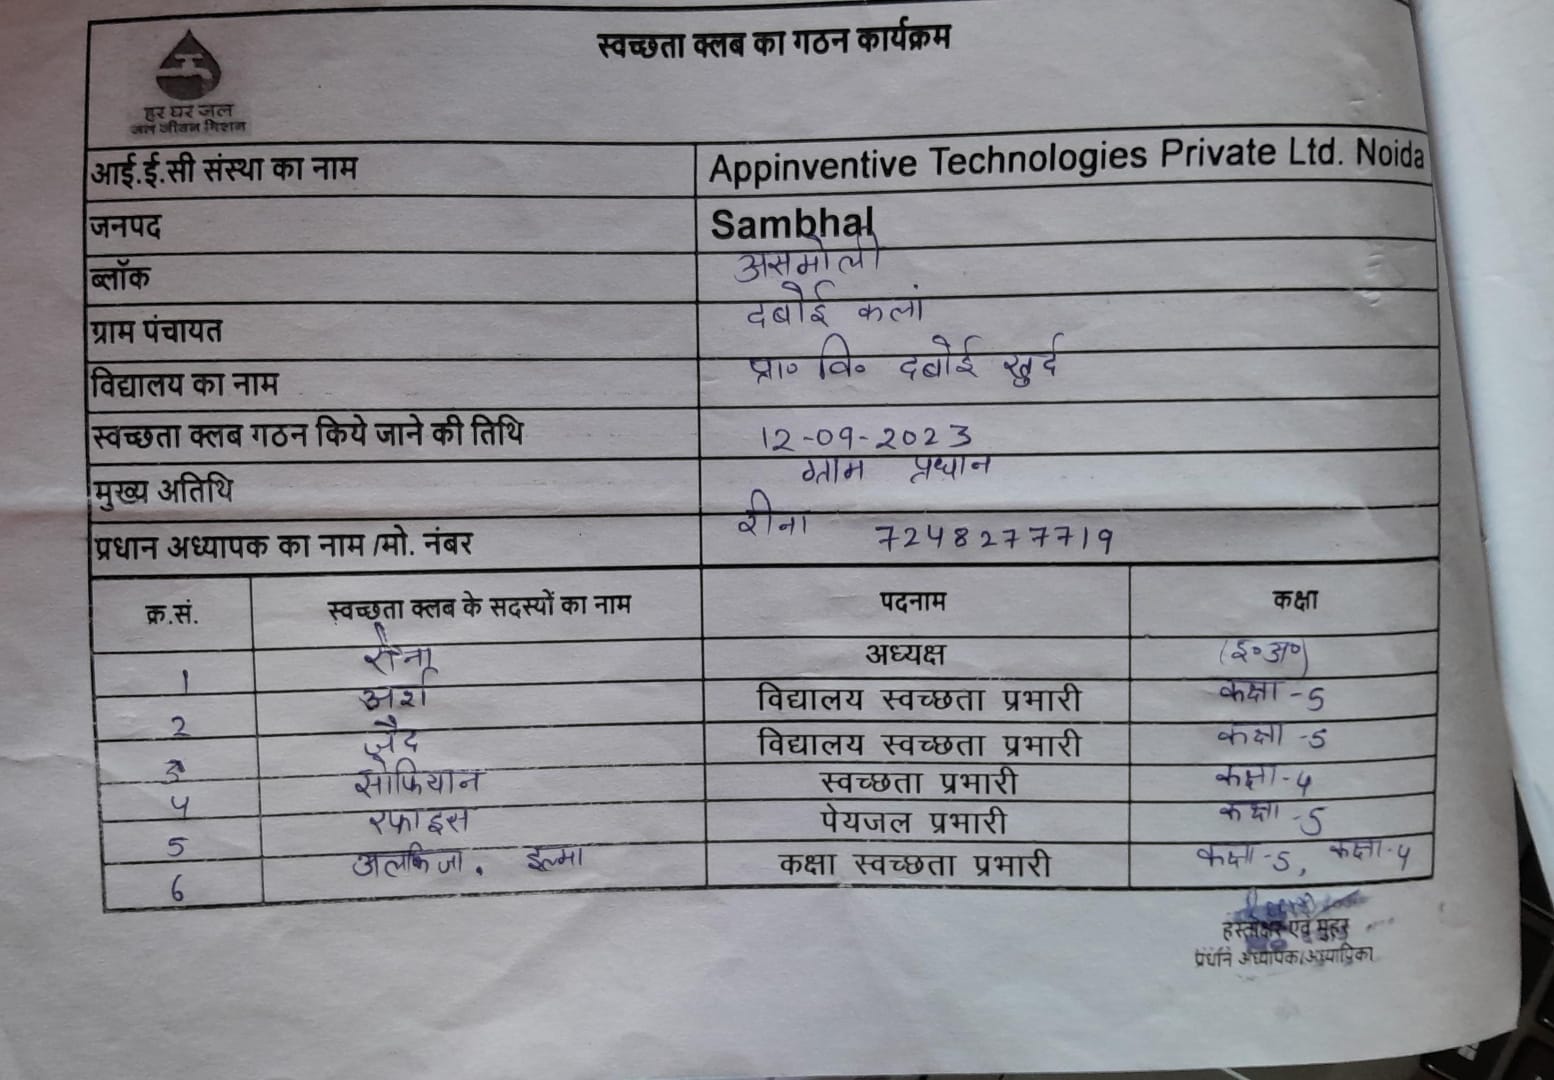 हर घर जल
जल जीवन मिशन
स्वच्छता क्लब का गठन कार्यक्रम
आई.ई.सी संस्था का नाम Appinventive Technologies Private Ltd. Noida
जनपद Sambhal
ब्लॉक असमोली
ग्राम पंचायत दबोई कलां
विद्यालय का नाम प्रा० वि० दबोई खुर्द
स्वच्छता क्लब गठन किये जाने की तिथि 12-09-2023
मुख्य अतिथि ग्राम प्रधान
प्रधान अध्यापक का नाम /मो. नंबर रीना 7248277719
क्र.सं. स्वच्छता क्लब के सदस्यों का नाम पदनाम कक्षा
1 अध्यक्ष (इ०अ०)
2 अर्श विद्यालय स्वच्छता प्रभारी कक्षा -5
3 ज़ैद विद्यालय स्वच्छता प्रभारी कक्षा -5
4 सोफियान स्वच्छता प्रभारी कक्षा-4
5 रफाइस पेयजल प्रभारी कक्षा -5
6 इल्मा कक्षा स्वच्छता प्रभारी कक्षा-5, कक्षा-4
हस्ताक्षर एवं मुहर
प्रधान अध्यापक/अध्यापिका